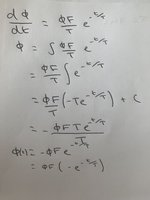 dΦ/dt = ΦF/T e^(-t/T)
Φ = ∫ ΦF/T e^(-t/T)
= ΦF/T ∫ e^(-t/T)
= ΦF/T (-Te^(-t/T)) + C
= - ΦFTe^(-t/T)/T
= -ΦFe^(-t/T)
= ΦF(-e^(-t/T))